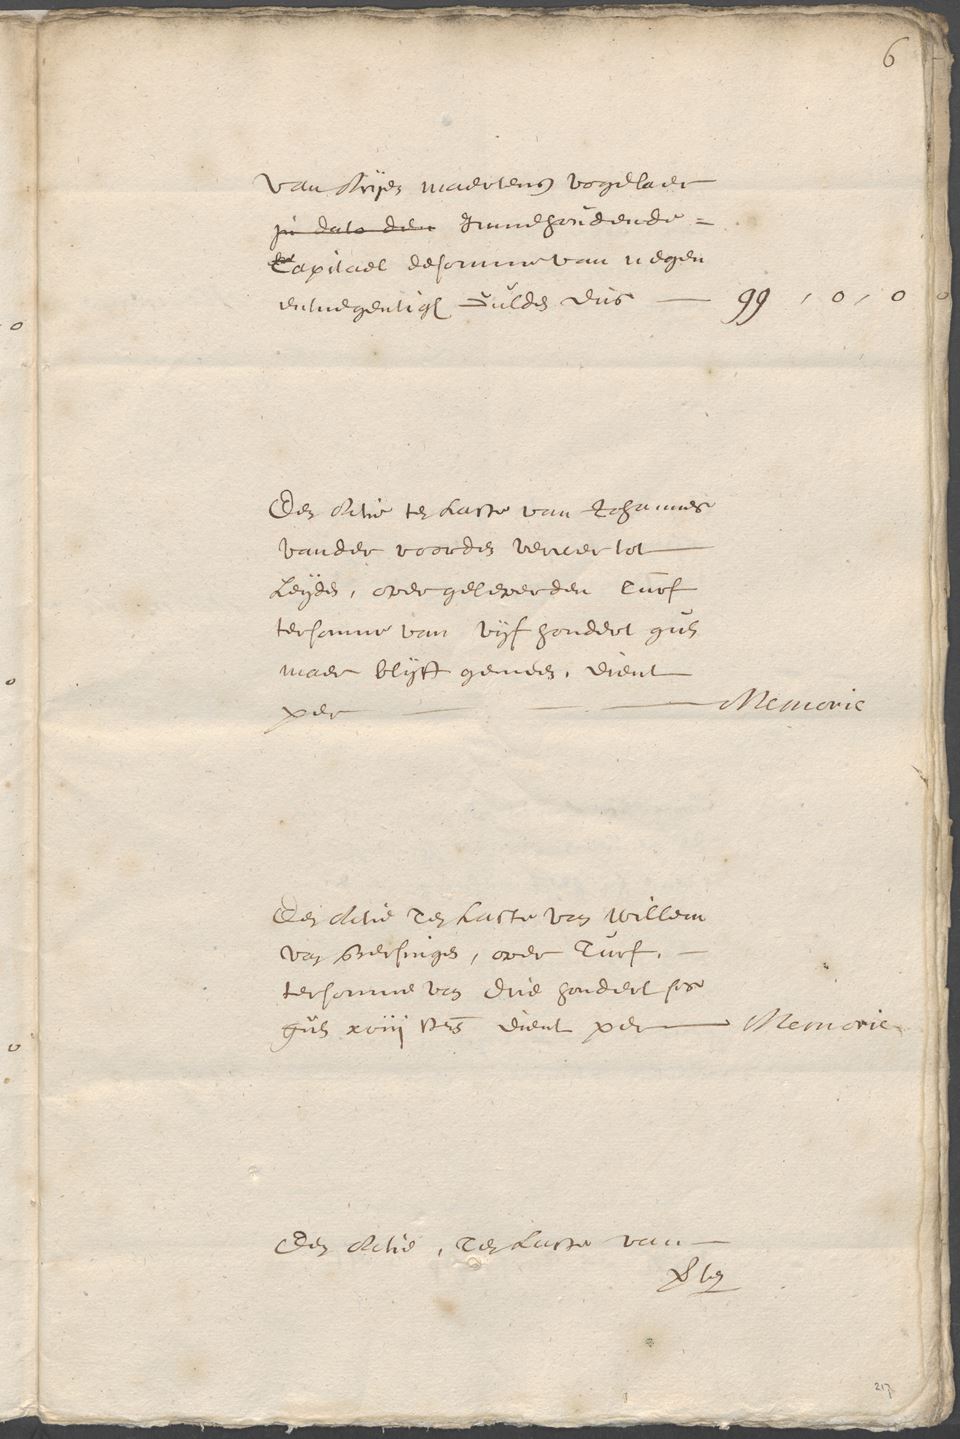 6
van Krijn Maertensz vogelaer
in dato den Innehoudende =
Capitael de somme van negen
entnegentigh Gulden dus — 99 , 0 , 0
Een Actie ten Laste van Johannes
vander voorden verwer tot
Leijden, over geleverden Turf
ter somme van vijf hondert guls
maer blijft gemeen, dient
per — Memorie
Een Actie Ten Laste van Willem
van , over Turf, —
ter somme van drie hondert ses
guls xviij sts dient per — Memorie
Een Actie, Ten Laste van —
217